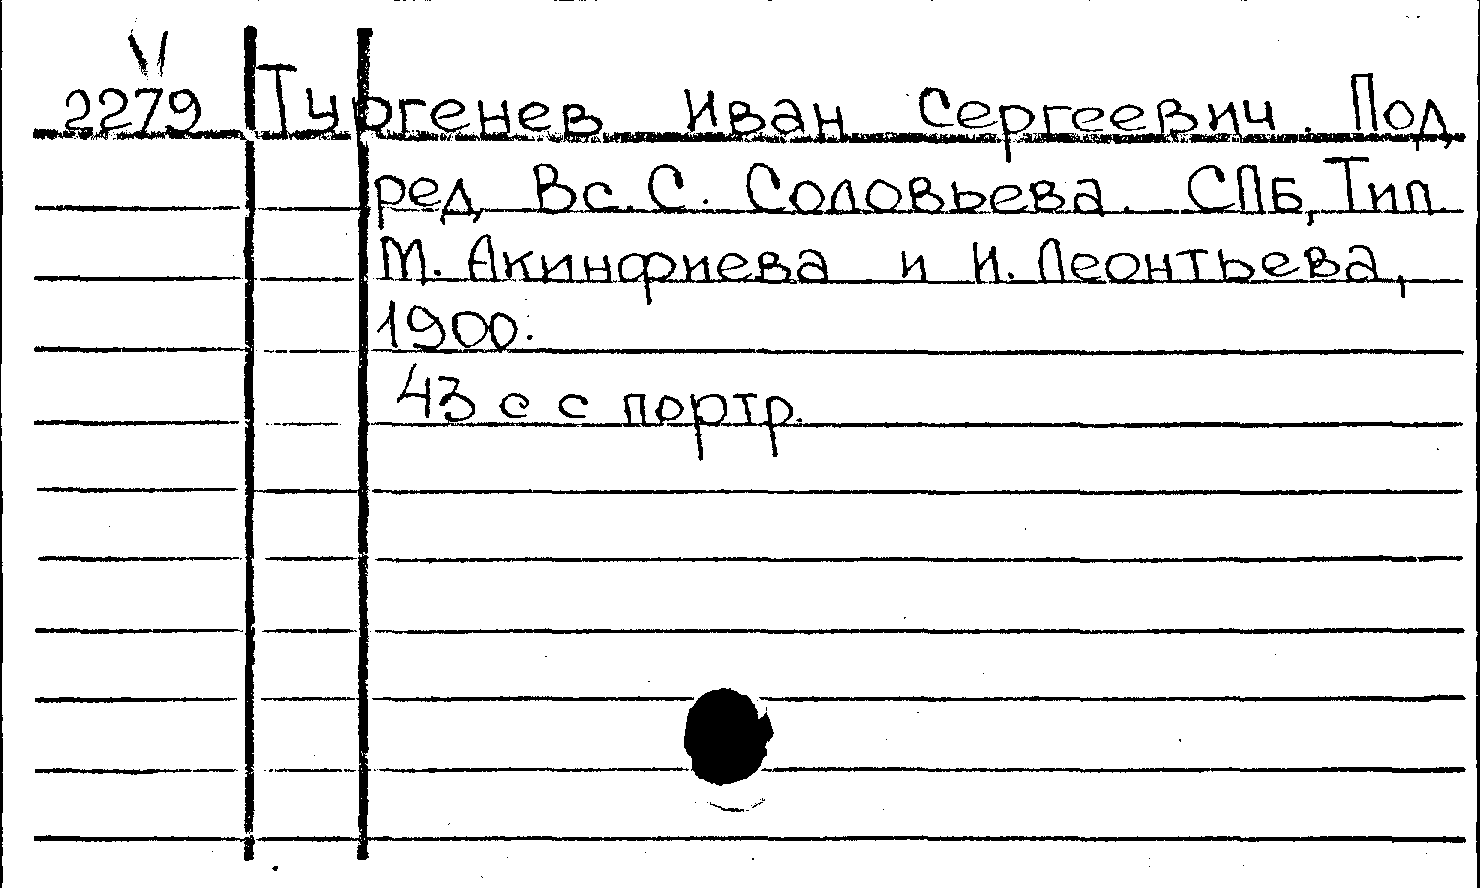 VI
2279 Тургенев Иван Сергеевич. Под
ред Вс. С. Соловьева. СПБ, Тип
М. Акинфиева и И. Леонтьева,
1900.
43 с с портр.